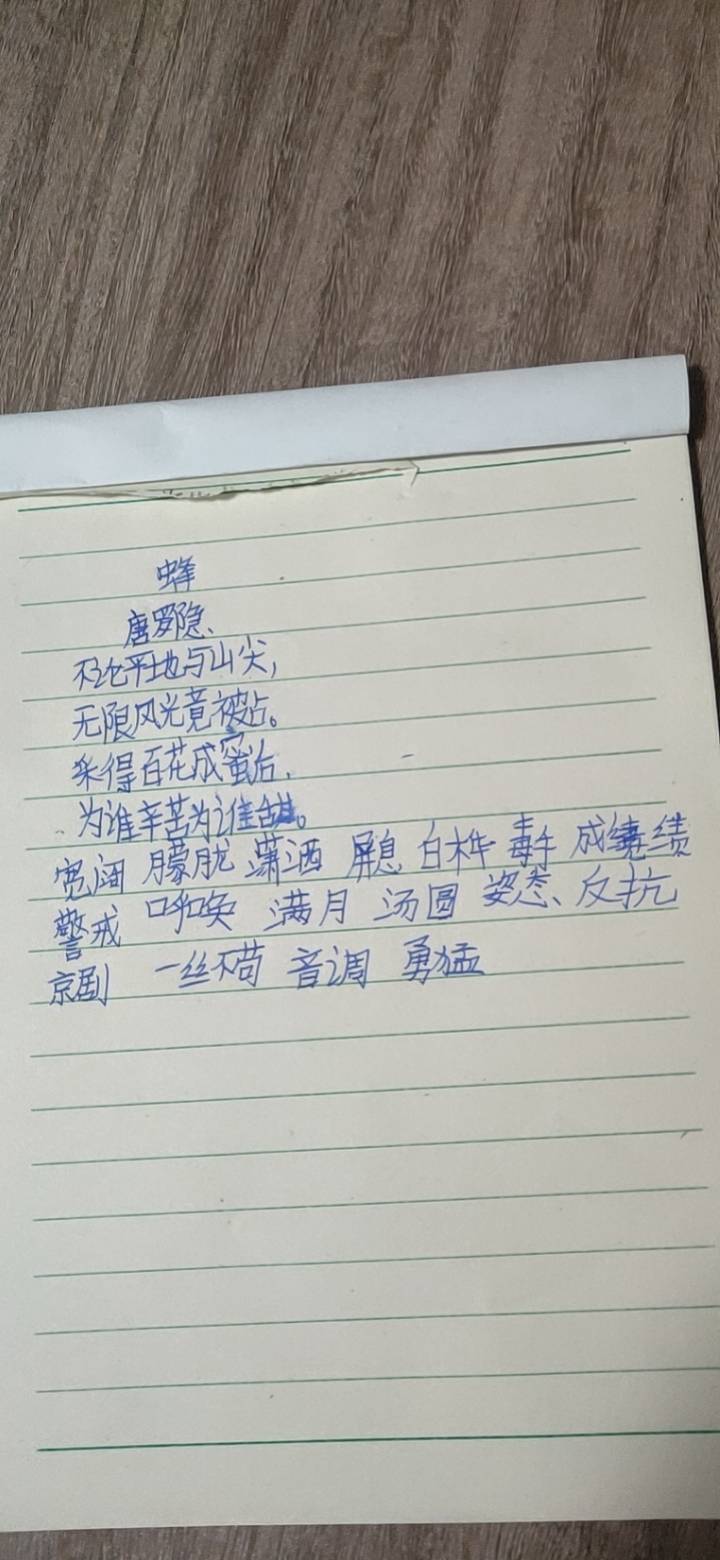 蜂
唐罗隐、
不论平地与山尖,
无限风光竟被占。
采得百花成蜜后,
为谁辛苦为谁甜。
宽阔 朦胧 潇洒 屏息 白桦 成绩
警戒 呼唤 满月 汤圆 姿态、反抗
京剧 一丝不苟 音调 勇猛